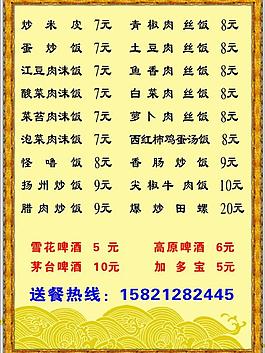 炒米皮 7元 青椒肉丝饭 8元
蛋炒饭 7元 土豆肉丝饭 8元
江豆肉沫饭 7元 鱼香肉丝饭 8元
酸菜肉沫饭 7元 白菜肉丝饭 8元
菜苔肉沫饭 7元 萝卜肉丝饭 8元
泡菜肉沫饭 7元 西红柿鸡蛋汤饭 8元
怪噜饭 8元 香肠炒饭 9元
扬州炒饭 9元 尖椒牛肉饭 10元
腊肉炒饭 9元 爆炒田螺 20元
雪花啤酒 5元 高原啤酒 6元
茅台啤酒 10元 加多宝 5元
送餐热线：15821282445